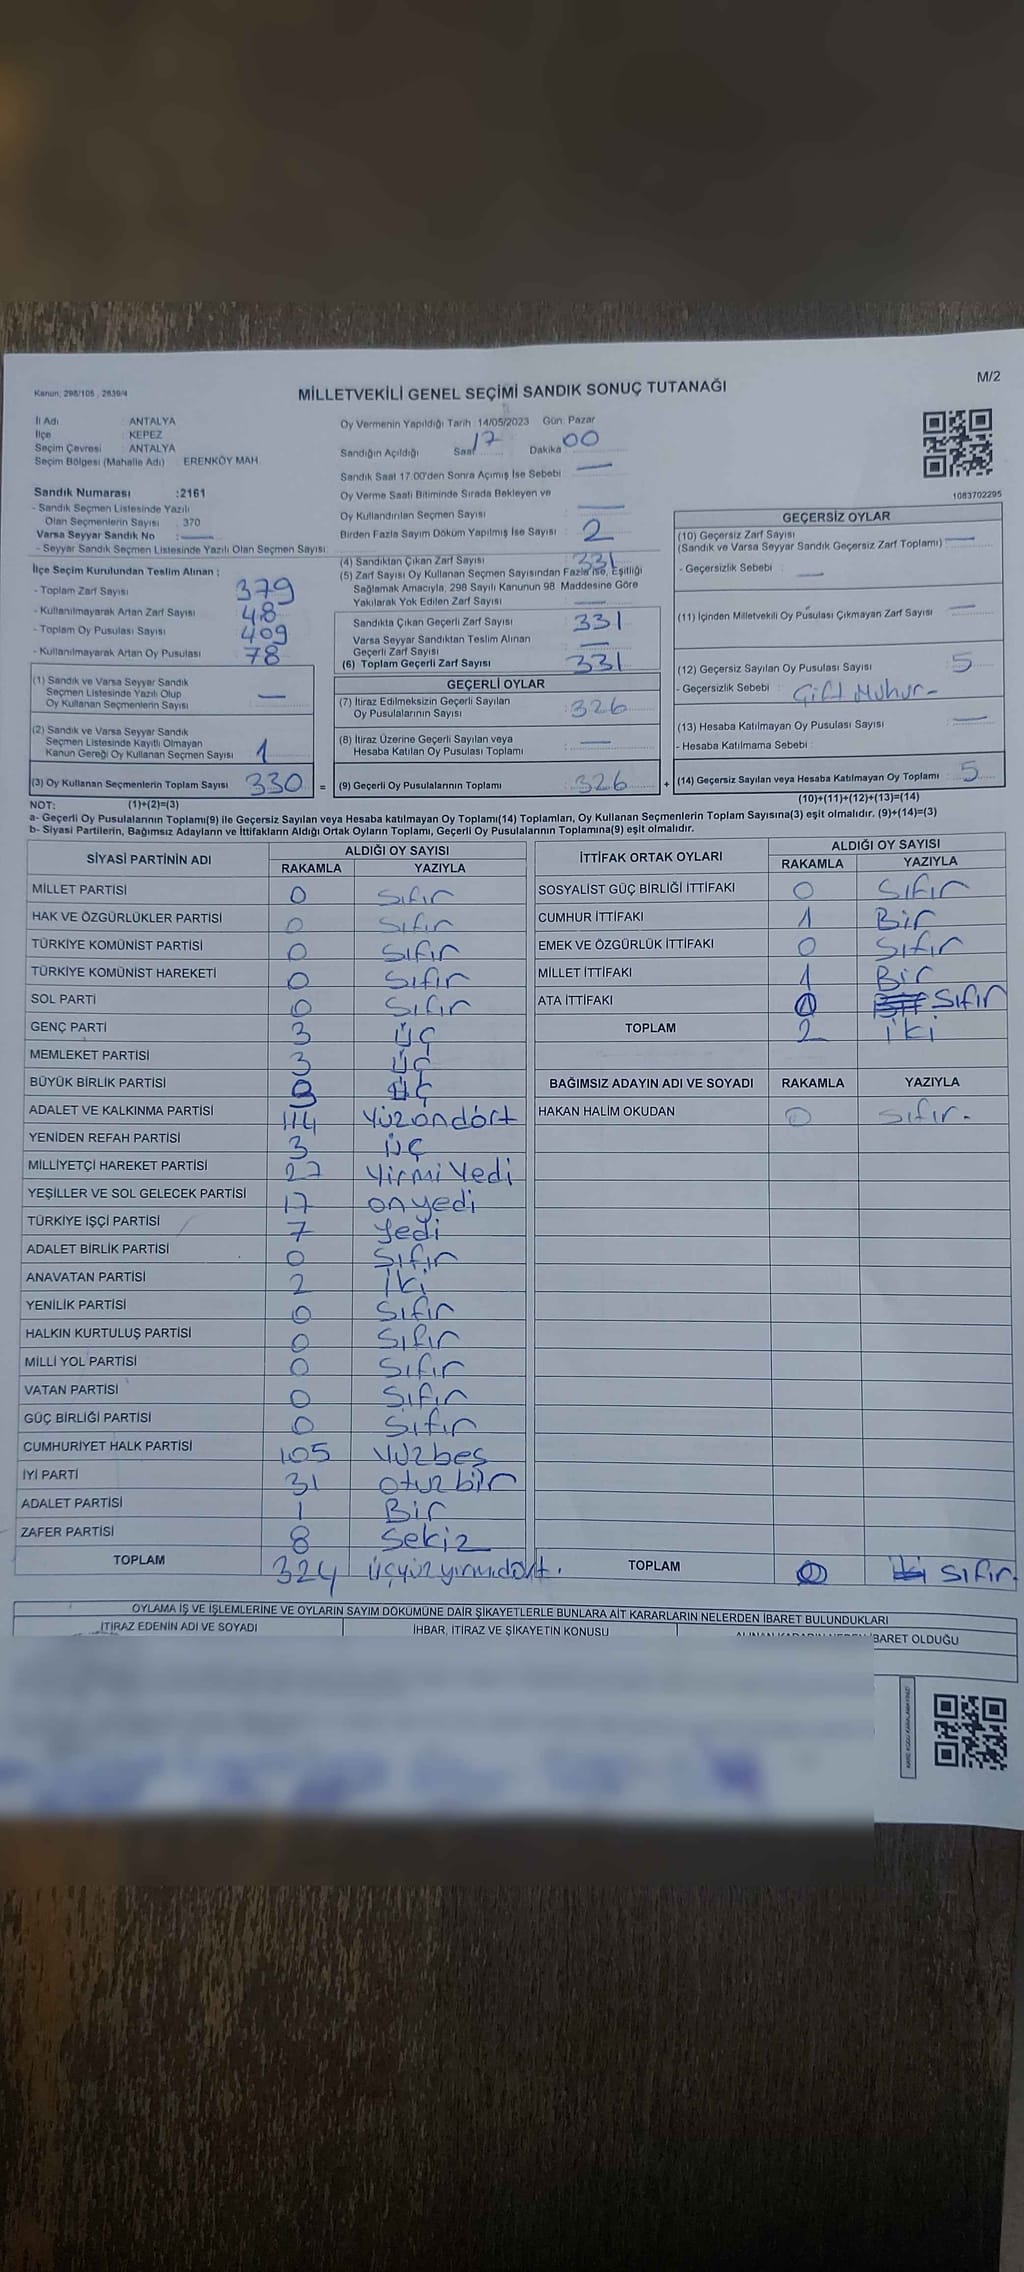 M/2
Kanun; 298/105 , 2839/4
MİLLETVEKİLİ GENEL SEÇİMİ SANDIK SONUÇ TUTANAĞI
İl Adı : ANTALYA
İlçe : KEPEZ
Seçim Çevresi : ANTALYA
Seçim Bölgesi (Mahalle Adı) : ERENKÖY MAH.
Sandık Numarası :2161
- Sandık Seçmen Listesinde Yazılı
Olan Seçmenlerin Sayısı : 370
Varsa Seyyar Sandık No : —
- Seyyar Sandık Seçmen Listesinde Yazılı Olan Seçmen Sayısı :
İlçe Seçim Kurulundan Teslim Alınan :
- Toplam Zarf Sayısı 379
- Kullanılmayarak Artan Zarf Sayısı 48
- Toplam Oy Pusulası Sayısı 409
- Kullanılmayarak Artan Oy Pusulası 78
(1) Sandık ve Varsa Seyyar Sandık
Seçmen Listesinde Yazılı Olup
Oy Kullanan Seçmenlerin Sayısı —
(2) Sandık ve Varsa Seyyar Sandık
Seçmen Listesinde Kayıtlı Olmayan
Kanun Gereği Oy Kullanan Seçmen Sayısı 1
(3) Oy Kullanan Seçmenlerin Toplam Sayısı 330 =
Oy Vermenin Yapıldığı Tarih :14/05/2023 Gün: Pazar
Sandığın Açıldığı Saat 17 Dakika 00
Sandık Saat 17:00'den Sonra Açımış İse Sebebi : —
Oy Verme Saati Bitiminde Sırada Bekleyen ve
Oy Kullandırılan Seçmen Sayısı : —
Birden Fazla Sayım Döküm Yapılmış İse Sayısı : 2
(4) Sandıktan Çıkan Zarf Sayısı : 331
(5) Zarf Sayısı Oy Kullanan Seçmen Sayısından Fazla ise, Eşitliği
Sağlamak Amacıyla, 298 Sayılı Kanunun 98. Maddesine Göre
Yakılarak Yok Edilen Zarf Sayısı : —
Sandıkta Çıkan Geçerli Zarf Sayısı : 331
Varsa Seyyar Sandıktan Teslim Alınan
Geçerli Zarf Sayısı : —
(6) Toplam Geçerli Zarf Sayısı : 331
GEÇERLİ OYLAR
(7) İtiraz Edilmeksizin Geçerli Sayılan
Oy Pusulalarının Sayısı : 326
(8) İtiraz Üzerine Geçerli Sayılan veya
Hesaba Katılan Oy Pusulası Toplamı : —
(9) Geçerli Oy Pusulalarının Toplamı : 326 +
1083702295
GEÇERSİZ OYLAR
(10) Geçersiz Zarf Sayısı
(Sandık ve Varsa Seyyar Sandık Geçersiz Zarf Toplamı) : —
- Geçersizlik Sebebi : —
(11) İçinden Milletvekili Oy Pusulası Çıkmayan Zarf Sayısı : —
(12) Geçersiz Sayılan Oy Pusulası Sayısı : 5
- Geçersizlik Sebebi : Çift Mühür-
(13) Hesaba Katılmayan Oy Pusulası Sayısı : —
- Hesaba Katılmama Sebebi :
(14) Geçersiz Sayılan veya Hesaba Katılmayan Oy Toplamı : 5
NOT: (1)+(2)=(3)
(10)+(11)+(12)+(13)=(14)
a- Geçerli Oy Pusulalarının Toplamı(9) ile Geçersiz Sayılan veya Hesaba katılmayan Oy Toplamı(14) Toplamları, Oy Kullanan Seçmenlerin Toplam Sayısına(3) eşit olmalıdır. (9)+(14)=(3)
b- Siyasi Partilerin, Bağımsız Adayların ve İttifakların Aldığı Ortak Oyların Toplamı, Geçerli Oy Pusulalarının Toplamına(9) eşit olmalıdır.
SİYASİ PARTİNİN ADI ALDIĞI OY SAYISI
RAKAMLA YAZIYLA
MİLLET PARTİSİ 0 Sıfır
HAK VE ÖZGÜRLÜKLER PARTİSİ 0 Sıfır
TÜRKİYE KOMÜNİST PARTİSİ 0 Sıfır
TÜRKİYE KOMÜNİST HAREKETİ 0 Sıfır
SOL PARTİ 0 Sıfır
GENÇ PARTİ 3 ÜÇ
MEMLEKET PARTİSİ 3 ÜÇ
BÜYÜK BİRLİK PARTİSİ 3 ÜÇ
ADALET VE KALKINMA PARTİSİ 114 Yüzondört
YENİDEN REFAH PARTİSİ 3 ÜÇ
MİLLİYETÇİ HAREKET PARTİSİ 27 Yirmi Yedi
YEŞİLLER VE SOL GELECEK PARTİSİ 17 onyedi
TÜRKİYE İŞÇİ PARTİSİ 7 Yedi
ADALET BİRLİK PARTİSİ 0 Sıfır
ANAVATAN PARTİSİ 2 İki
YENİLİK PARTİSİ 0 Sıfır
HALKIN KURTULUŞ PARTİSİ 0 Sıfır
MİLLİ YOL PARTİSİ 0 Sıfır
VATAN PARTİSİ 0 Sıfır
GÜÇ BİRLİĞİ PARTİSİ 0 Sıfır
CUMHURİYET HALK PARTİSİ 105 Yüzbeş
İYİ PARTİ 31 otuzbir
ADALET PARTİSİ 1 Bir
ZAFER PARTİSİ 8 Sekiz
TOPLAM 324 üçyüzyirmidört.
İTTİFAK ORTAK OYLARI ALDIĞI OY SAYISI
RAKAMLA YAZIYLA
SOSYALİST GÜÇ BİRLİĞİ İTTİFAKI 0 Sıfır
CUMHUR İTTİFAKI 1 Bir
EMEK VE ÖZGÜRLÜK İTTİFAKI 0 Sıfır
MİLLET İTTİFAKI 1 Bir
ATA İTTİFAKI 0 Sıfır
TOPLAM 2 iki
BAĞIMSIZ ADAYIN ADI VE SOYADI RAKAMLA YAZIYLA
HAKAN HALİM OKUDAN 0 sıfır.
TOPLAM 0 sıfır.
OYLAMA İŞ VE İŞLEMLERİNE VE OYLARIN SAYIM DÖKÜMÜNE DAİR ŞİKAYETLERLE BUNLARA AİT KARARLARIN NELERDEN İBARET BULUNDUKLARI
İTİRAZ EDENİN ADI VE SOYADI İHBAR, İTİRAZ VE ŞİKAYETİN KONUSU İBARET OLDUĞU